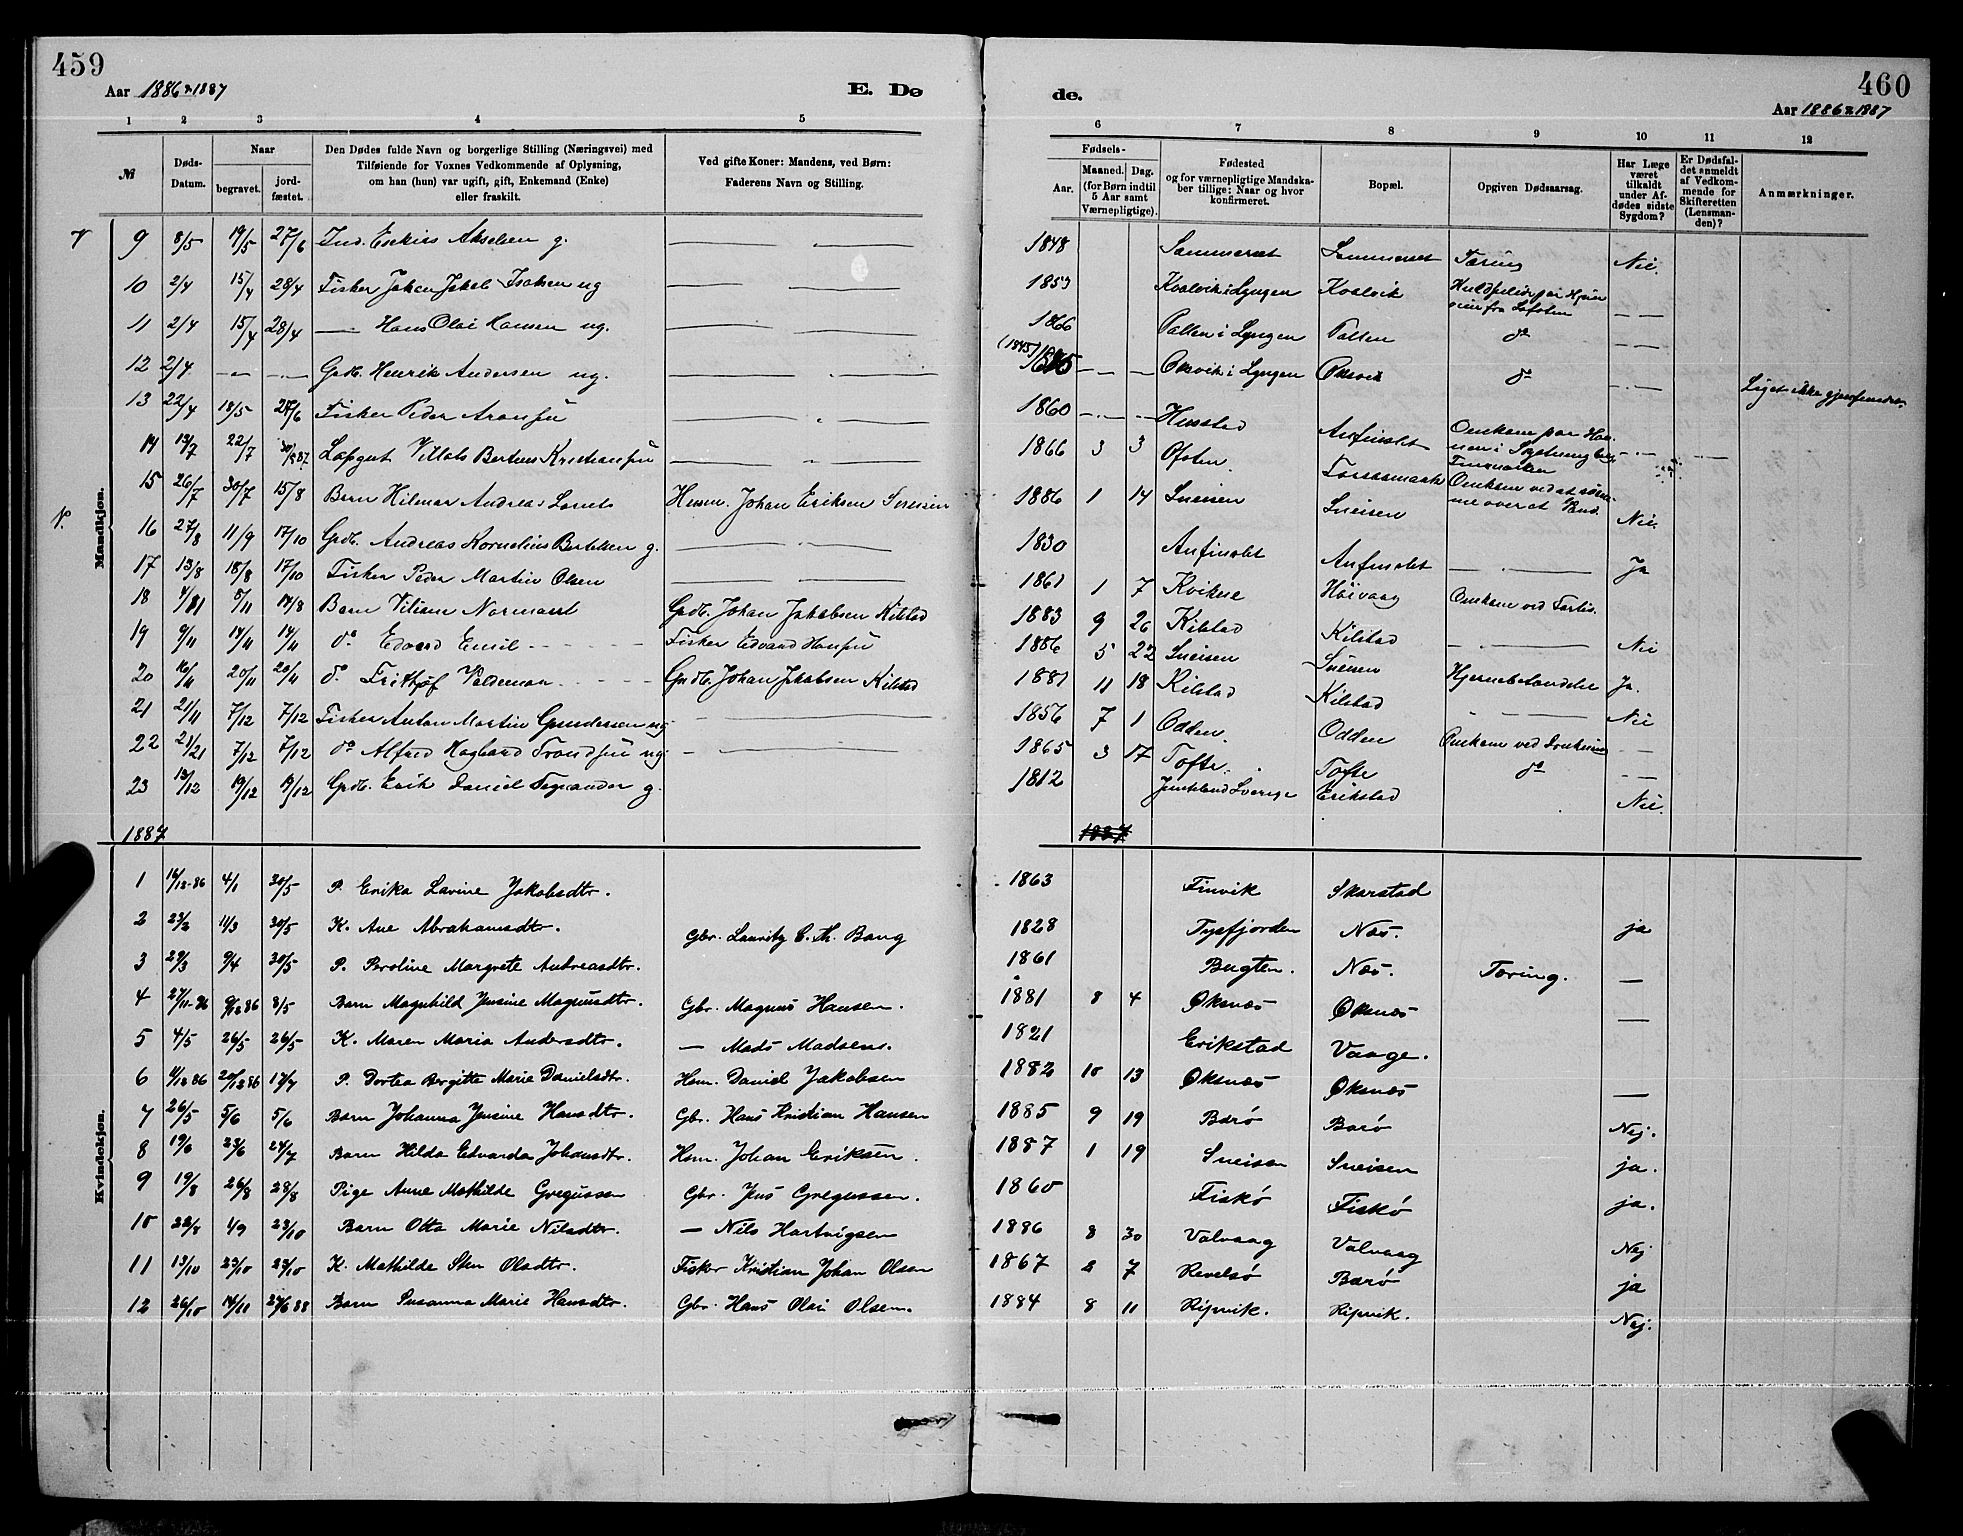 459
Aar 1886 & 1887
E. Dø
1 2 3 4 5
№
Døds-Datum.
Naar
begravet.
jordfæstet.
Den Dødes fulde Navn og borgerlige Stilling (Næringsvei) med
Tilføiende for Voxnes Vedkommende af Oplysning,
om han (hun) var ugift, gift, Enkemand (Enke)
eller fraskilt.
Ved gifte Koner: Mandens, ved Børn:
Faderens Navn og Stilling.
Mandkjøn.
9 8/5 19/5 27/6 Ind. Akselsen g.
10 2/4 15/4 28/4 Fisker Johan Jakob Isaksen ug
11 2/4 15/4 28/4 — Hans Olai Hansen ug.
12 2/4 — — Grdb. Henrik Andersen ug.
13 22/4 18/5 27/6 Fisker Peder
14 13/7 22/7 Bertius Kristiansen
15 26/7 30/7 15/8 Barn Hilmar Andreas Husm. Johan Eriksen Sneisen
16 27/8 11/9 17/10 Grdb. Andreas Kornelius Bertelsen g.
17 13/8 18/8 17/10 Fisker Peder Martin Olsen
18 Barn Viliam Normann Grdb. Johan Jakobsen Kilstad
19 9/11 14/11 14/11 do Edvard Emil Fisker Edvard Hansen
20 16/11 20/11 20/11 do Frithjof Valdemar Grdb. Johan Jakobsen Kilstad
21 21/11 7/12 7/12 Fisker Anton Martin Gundersen ug
22 7/12 7/12 do Alfred Hagbard Trondsen ug
23 13/12 19/12 19/12 Grdb. Erik Daniel g.
1887
Kvindekjøn.
1 16/12-86 4/1 30/5 P. Erika Lavine Jakobsdtr.
2 23/2 11/3 30/5 K. Ane Abrahamsdtr. Gbr. Lauritz C. Th. Bang
3 29/3 9/4 30/5 P. Peroline Margrete Andreasdtr.
4 27/11-86 8/5 Barn Magnhild Jensine Magnusdtr. Gbr. Magnus Hansen.
5 4/5 26/5 26/5 K. Maren Maria Andersdtr. — Mads Madsens.
6 20/12 86 17/7 P. Dortea Birgitte Marie Danielsdtr. Hsm. Daniel Jakobsen
7 26/5 5/6 5/6 Barn Johanna Jensine Hansdtr. Gbr. Hans Kristian Hansen
8 19/6 23/6 24/7 Barn Hilda Edvarda Johansdtr. Hsm. Johan Eriksen.
9 19/8 26/8 28/8 Pige Anne Mathilde Gregussen Gbr. Jens Gregussen.
10 22/8 4/9 23/10 Barn Otta Marie Nilsdtr. — Nils Hartvigsen
11 13/10 23/10 23/10 K. Mathilde Sten Olsdtr. Fisker Kristian Johan Olsen
12 26/10 14/11 Barn Susanna Marie Hansdtr. Gbr. Hans Olai Olsen.
de.
460
Aar 1886 & 1887
6 7 8 9 10 11 12
Fødsels-
Aar.
Maaned. Dag.
(for Børn indtil
5 Aar samt
Værnepligtige).
Fødested
og for værnepligtige Mandska-
ber tillige: Naar og hvor
konfirmeret.
Bopæl.
Opgiven Dødsaarsag.
Har Læge
været
tilkaldt
under Af-
dødes sidste
Sygdom?
Er Dødsfal-
det anmeldt
af Vedkom-
mende for
Skifteretten
(Lensman-
den)?
Anmærkninger.
1848 Sommerset Sommerset Tæring Nei.
1853 Kvalvik i Lyngen Kvalvik Kuldseilt paa Hjem
veien fra Lofoten — —
1866 Pollen i Lyngen Pollen do — —
(1845) Oksvik i Lyngen Oksvik do — — Liget ikke gjenfundet.
1860 Husstad Omkom paa
1866 3 3 Ofoten
1886 1 14 Sneisen Sneisen Omkom ved at Nei
1830 Anfinslet Anfinslet — Ja
1861 1 7 Høivaag Omkom ved Forlis.
1883 9 26 Kilstad Kilstad — Nei
1886 5 22 Sneisen Sneisen Hjernebetændelse Ja.
1881 11 18 Kilstad Kilstad — Nei
1856 7 1 Odden. Odden Omkom ved Drukning — —
1865 3 17 Tofte. Tofte do — —
1812 Jemtland Sverige Erikstad Nei.
1887
1863 Finvik Skarstad
1828 Tysfjorden Næs. ja
1861 Bugten. Næs. Tæring. —
1881 8 4 Øksnæs Øksnæs —
1821 Erikstad Vaage.
1882 10 13 Øksnæs Øksnæs —
1885 9 19 Barø Barø Nej.
1887 1 19 Sneisen Sneisen ja.
1860 Fiskø Fiskø ja.
1886 8 30 Valvaag Valvaag Nej
1867 2 7 Revelsø Barø ja
1884 8 11 Ripvik. Ripvik. Nej.